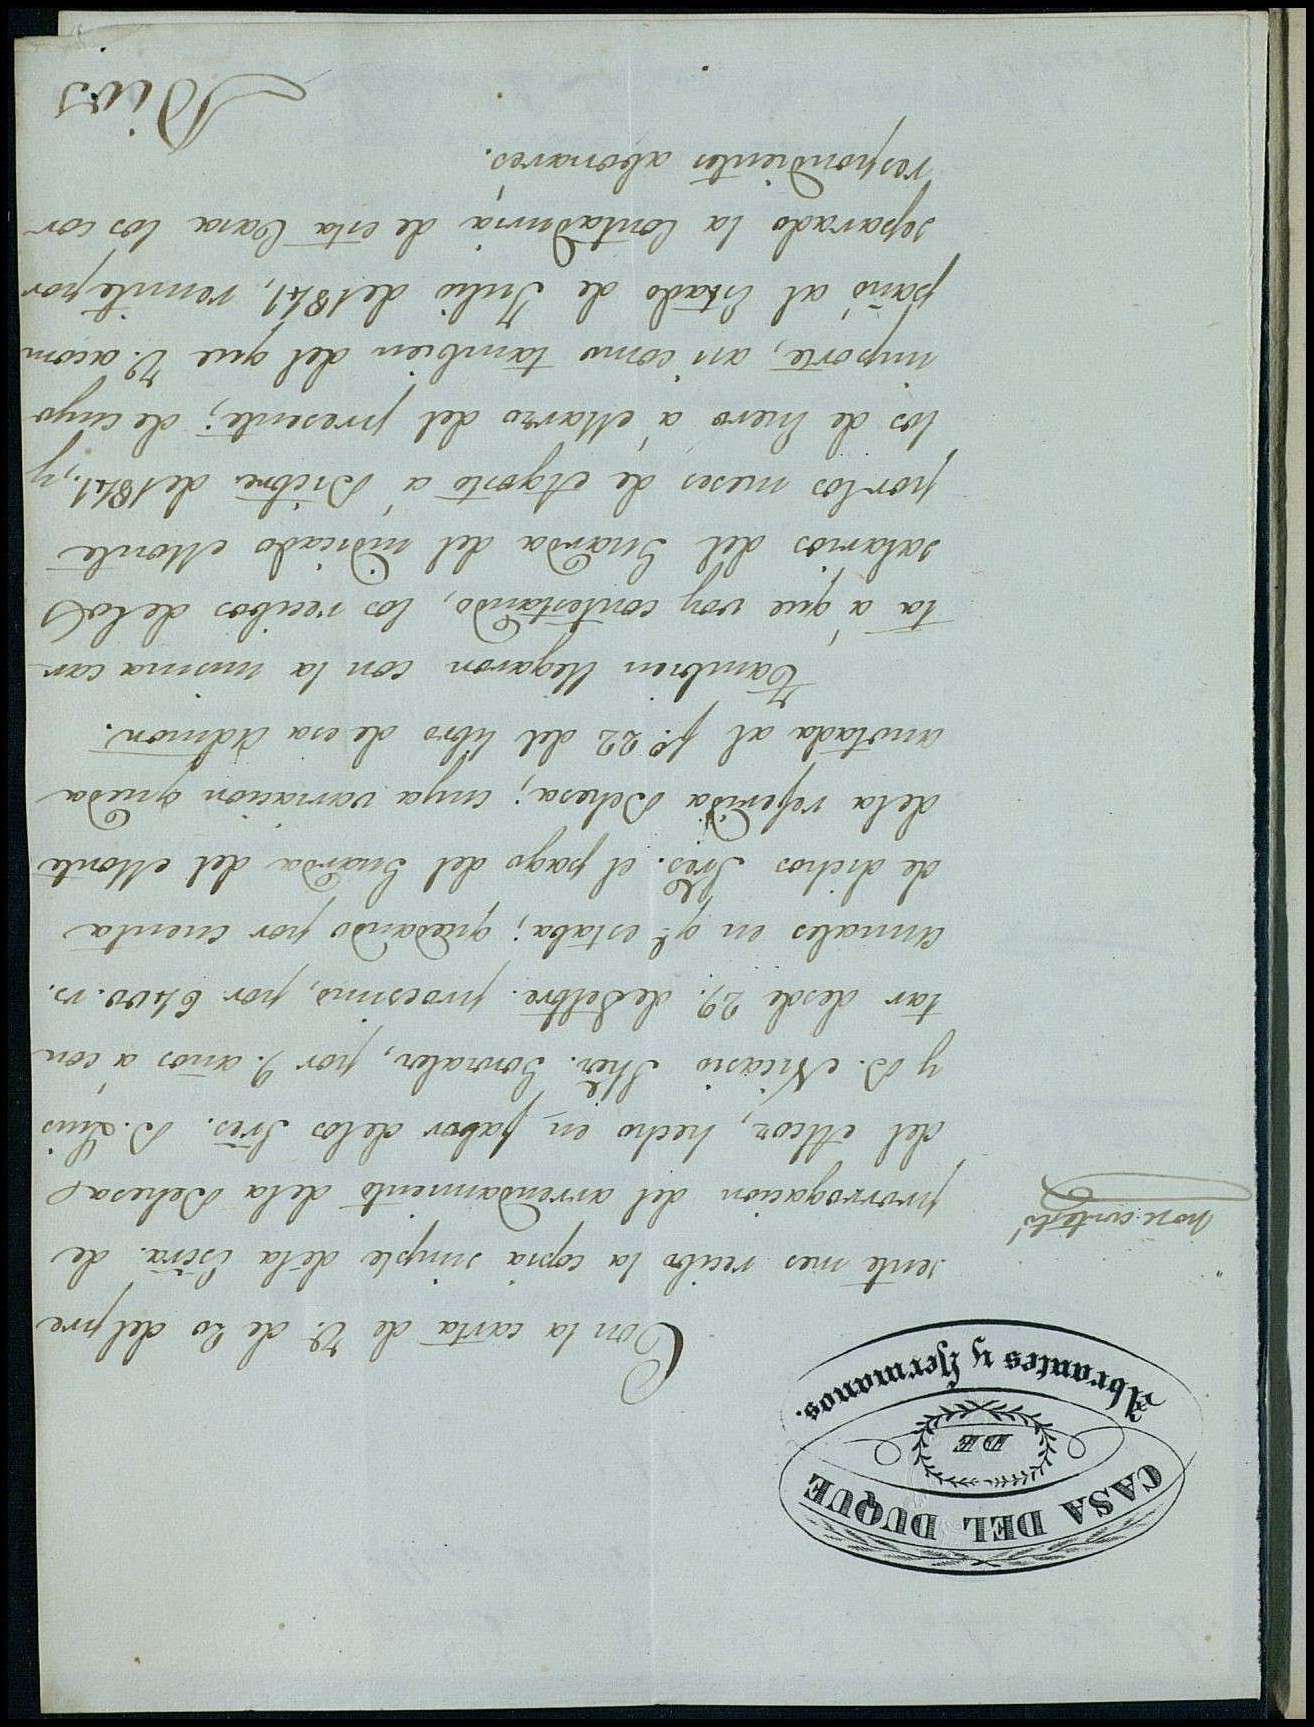 CASA DEL DUQUE
DE
Abrantes y Hermanos.
Con la carta de V. de 20 del pre
sente mes recibo la copia simple de la Escra. de
prorrogacion del arrendamiento de la Dehesa
del Alcor, hecho en fabor de los Sres. D. Luis
y D. Nicasio Gonzalez, por 9. años á con
tar desde 29. de Setbre. procsimo, por 6400. rs.
annales en qe. estaba; quedando por cuenta
de dichos Sres. el pago del Guarda del Monte
de la referida Dehesa; cuya variacion queda
anotada al fo. 22 del libro de esa Admon.
Tambien llegaron con la misma car
ta á que voy contestando, los recibos de los
salarios del Guarda del indicado Monte
por los meses de Agosto á Dicbre de 1841, y
los de Enero á Marzo del presente; de cuyo
importe, asi como tambien del que V. acom
pañó al Estado de Julio de 1841, remite por
separado la Contaduria de esta Casa los cor
respondientes abonarés.
Dios
no se contestó